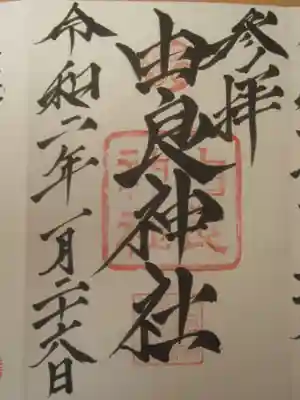 参拝
由良神社
令和二年一月二十六日